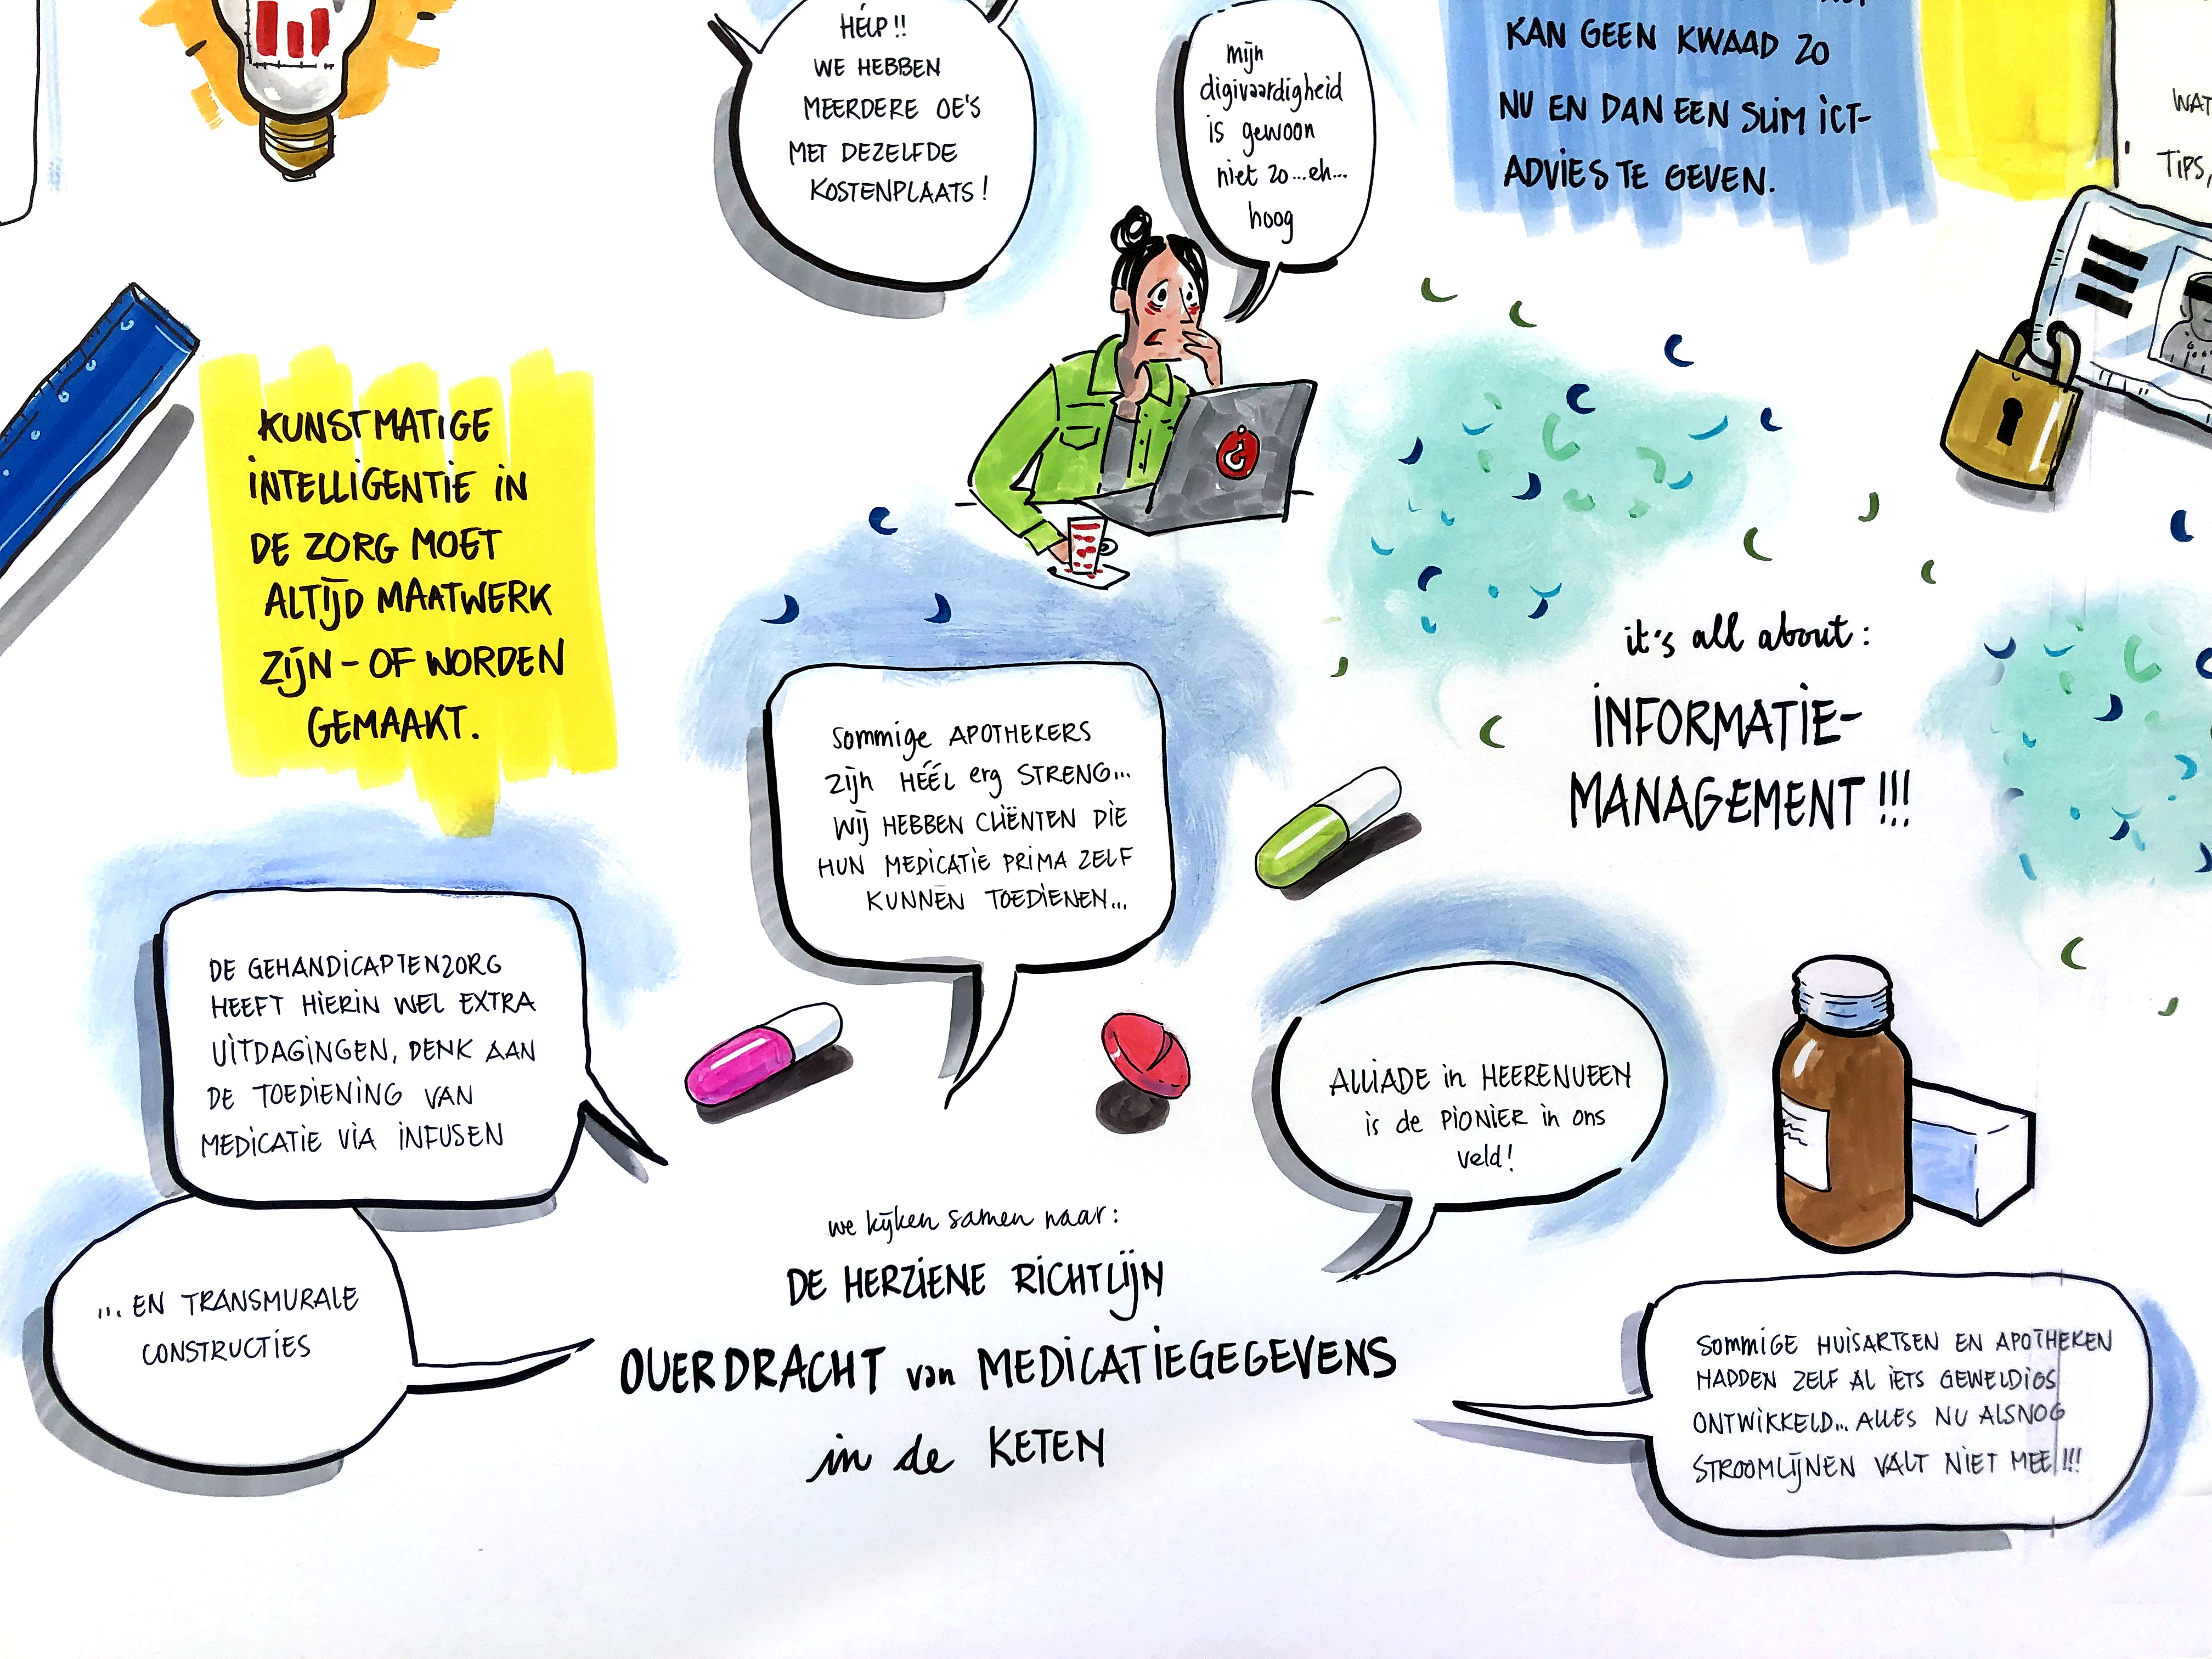 HÉLP!!
WE HEBBEN
MEERDERE OE'S
MET DEZELFDE
KOSTENPLAATS!
mijn
digivaardigheid
is gewoon
niet zo...eh...
hoog
KAN GEEN KWAAD ZO
NU EN DAN EEN SLIM ICT-
ADVIES TE GEVEN.
TIPS,
KUNSTMATIGE
INTELLIGENTIE IN
DE ZORG MOET
ALTIJD MAATWERK
ZIJN - OF WORDEN
GEMAAKT.
it's all about:
INFORMATIE-
MANAGEMENT!!!
Sommige APOTHEKERS
zijn HÉÉL erg STRENG...
WIJ HEBBEN CLIËNTEN DIE
HUN MEDICATIE PRIMA ZELF
KUNNEN TOEDIENEN...
DE GEHANDICAPTENZORG
HEEFT HIERIN WEL EXTRA
UITDAGINGEN, DENK AAN
DE TOEDIENING VAN
MEDICATIE VIA INFUSEN
... EN TRANSMURALE
CONSTRUCTIES
ALLIADE in HEERENVEEN
is de PIONIER in ons
veld!
we kijken samen naar:
DE HERZIENE RICHTLIJN
OVERDRACHT van MEDICATIEGEGEVENS
in de KETEN
SOMMIGE HUISARTSEN EN APOTHEKEN
HADDEN ZELF AL IETS GEWELDIGS
ONTWIKKELD... ALLES NU ALSNOG
STROOMLIJNEN VALT NIET MEE!!!